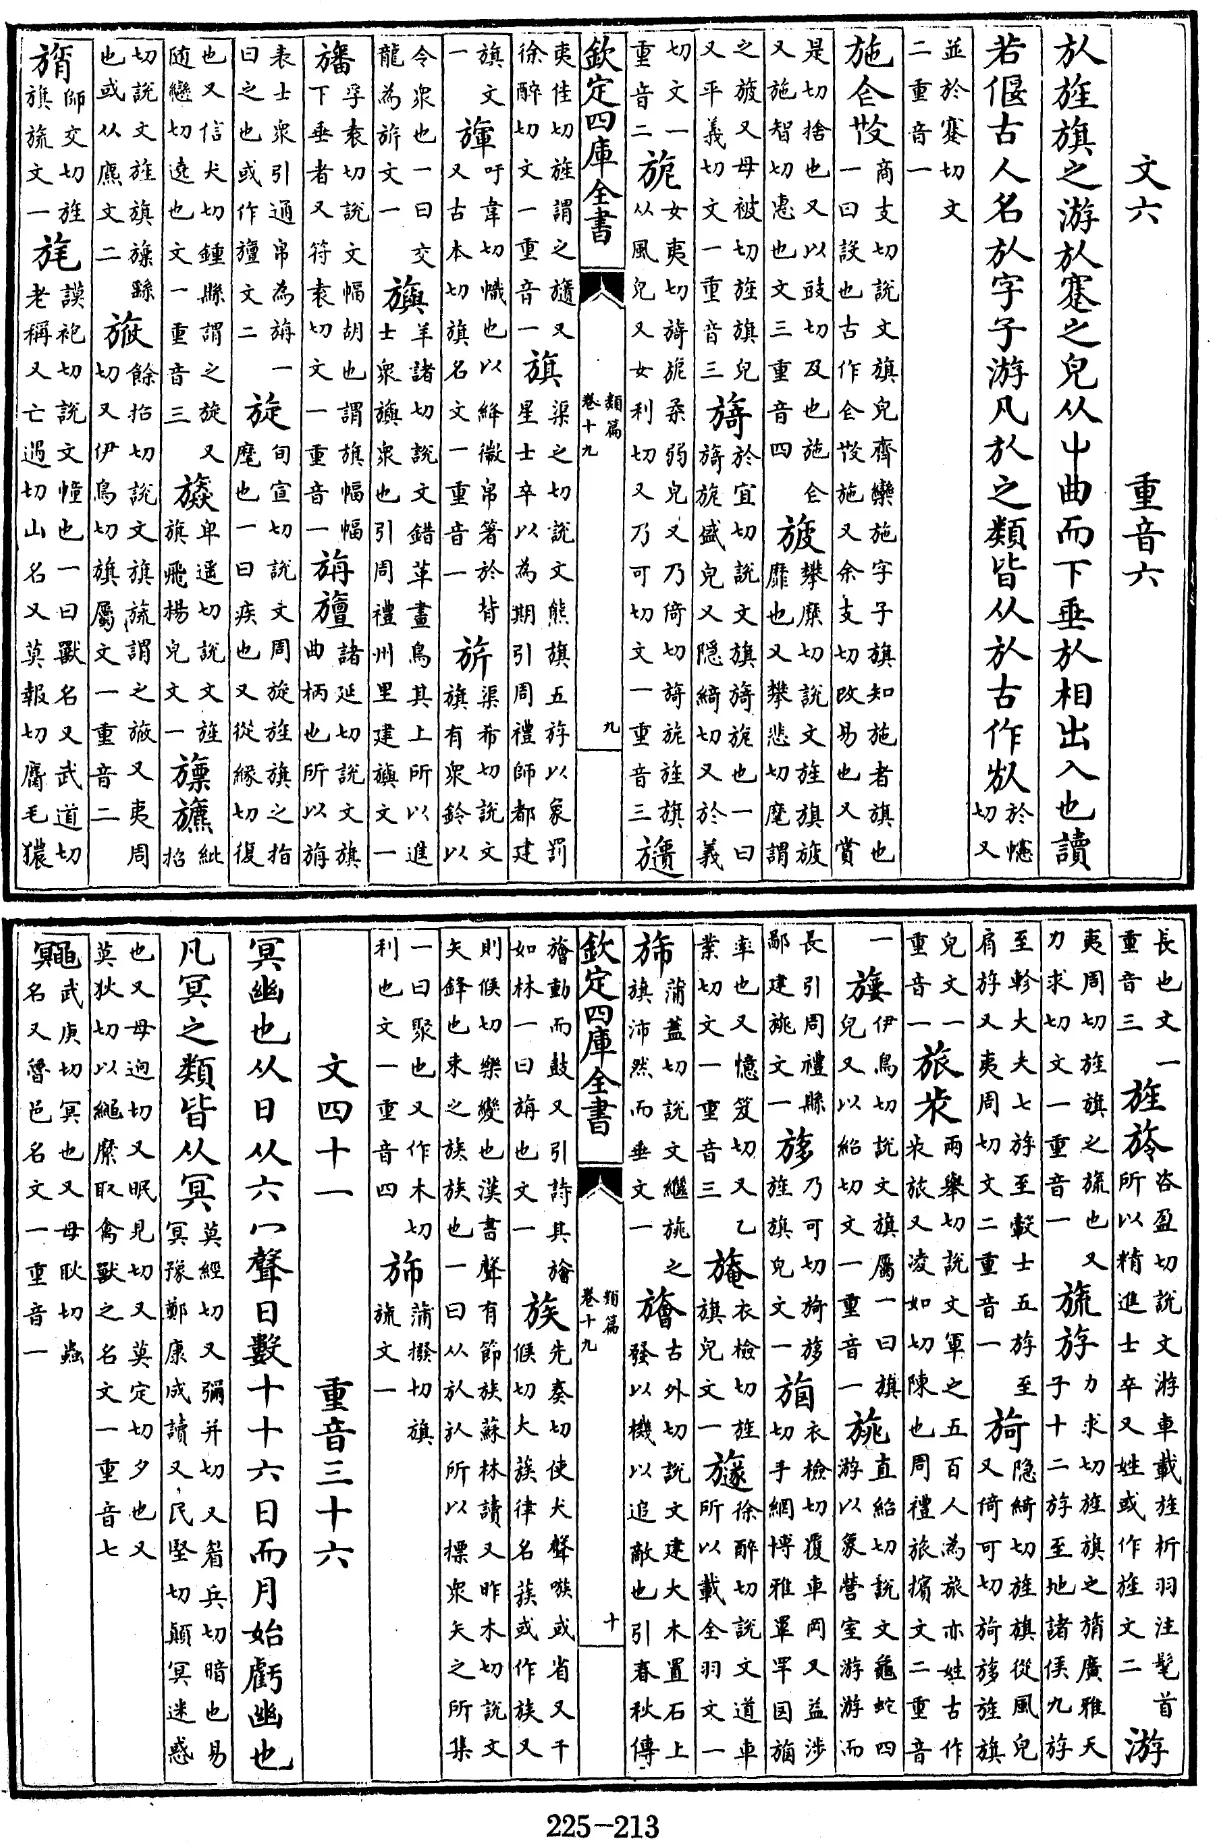 文六 重音六
㫃旌旗之游㫃蹇之皃从屮曲而下垂㫃相出入也讀
若偃古人名㫃字子游凡㫃之類皆从㫃古作 於幰切又
並於蹇切文二重音一
施㐌𢻫商支切說文旗皃齊欒施字子旗知施者旗也一曰設也古作㐌𢻫施又余支切改易也又賞
是切捨也又以豉切及也施㐌又施智切惠也文三重音四 旇攀糜切說文旌旗旇靡也又攀悲切麾謂
之旇又母被切旌旗皃又平義切文一重音三 旖於宜切說文旗旖旎也一曰旖旎盛皃又隱綺切又於義
切文一重音二 旎女夷切旖旎柔弱皃又乃倚切旖旎旌旗从風皃又女利切又乃可切文一重音三 𣄚
欽定四庫全書 類篇 卷十九 九
夷隹切旌謂之𣄚又徐醉切文一重音一 旗渠之切說文熊旗五斿以象罰星士卒以為期引周禮師都建
旗文一 㫎吁韋切幟也以絳徽帛箸於背又古本切旗名文一重音一 旂渠希切說文旗有衆鈴以
令衆也一曰交龍為旂文一 旟羊諸切說文錯革畫鳥其上所以進士衆旟旟衆也引周禮州里建旟文一
旛孚袁切說文幅胡也謂旗幅幅下垂者又符袁切文一重音一 旃旜諸延切說文旗曲柄也所以旃
表士衆引通帛為旃一曰之也或作旜文二 旋旬宣切說文周旋旌旗之指麾也一曰疾也又從緣切復
也又信犬切鍾縣謂之旋又隨戀切遶也文一重音三 旚卑遥切說文旌旗飛揚皃文一 紕招
切說文旌旗旚繇也或从麃文二 餘招切說文旗旒謂之又夷周切又伊鳥切旗屬文一重音二
旓師交切旌旗旒文一 旄謨袍切說文幢也一曰獸名又武道切老稱又亡遇切山名又莫報切膺毛獽
長也文一重音三 旌㫋咨盈切說文游車載旌析羽注髦首所以精進士卒又姓或作旌文二 游
夷周切旌旗之旒也又力求切文一重音一 旒斿力求切旌旗之旓廣雅天子十二斿至地諸侯九斿
至軫大夫七斿至轂士五斿至肩斿又夷周切文二重音一 旑隱綺切旌旗從風皃又倚可切旑旑旌旗
皃文一重音一 旅㫑兩舉切說文軍之五百人為旅亦姓古作㫑旅又凌如切陳也周禮旅擯文二重音
一 伊鳥切說文旗屬一曰旗皃又以紹切文一重音一 旐直紹切說文龜蛇四游以象營室游游而
長引周禮縣鄙建旐文一 乃可切旑旌旗皃文一 衣檢切覆車网又益涉切手網博雅罩罕
率也又憶笈切又乙業切文一重音三 衣檢切旌旗皃文一 徐醉切說文導車所以載全羽文一
旆蒲蓋切說文繼旐之旗沛然而垂文一 旝古外切說文建大木置石上發以機以追敵也引春秋傳
欽定四庫全書 類篇 卷十九 十
旝動而鼓又引詩其旝如林一曰旃也文一 族先奏切使犬聲嗾或省又千候切大蔟律名蔟或作族又
則候切樂變也漢書聲有節族蘇林讀又昨木切說文矢鋒也束之族族也一曰从㫃㫃所以標衆矢之所集
一曰聚也又作木切利也文一重音四 蒲撥切旗旒文一
文四十一 重音三十六
冥幽也从日从六冖聲日數十十六日而月始虧幽也
凡冥之類皆从冥莫經切又彌并切又眉兵切暗也易冥豫鄭康成讀又民堅切顚冥迷惑
也又母迥切又眠見切又莫定切夕也又莫狄切以繩縻取禽獸之名文一重音七
鼆武庚切冥也又母耿切蟲名又魯邑名文一重音一
225-213